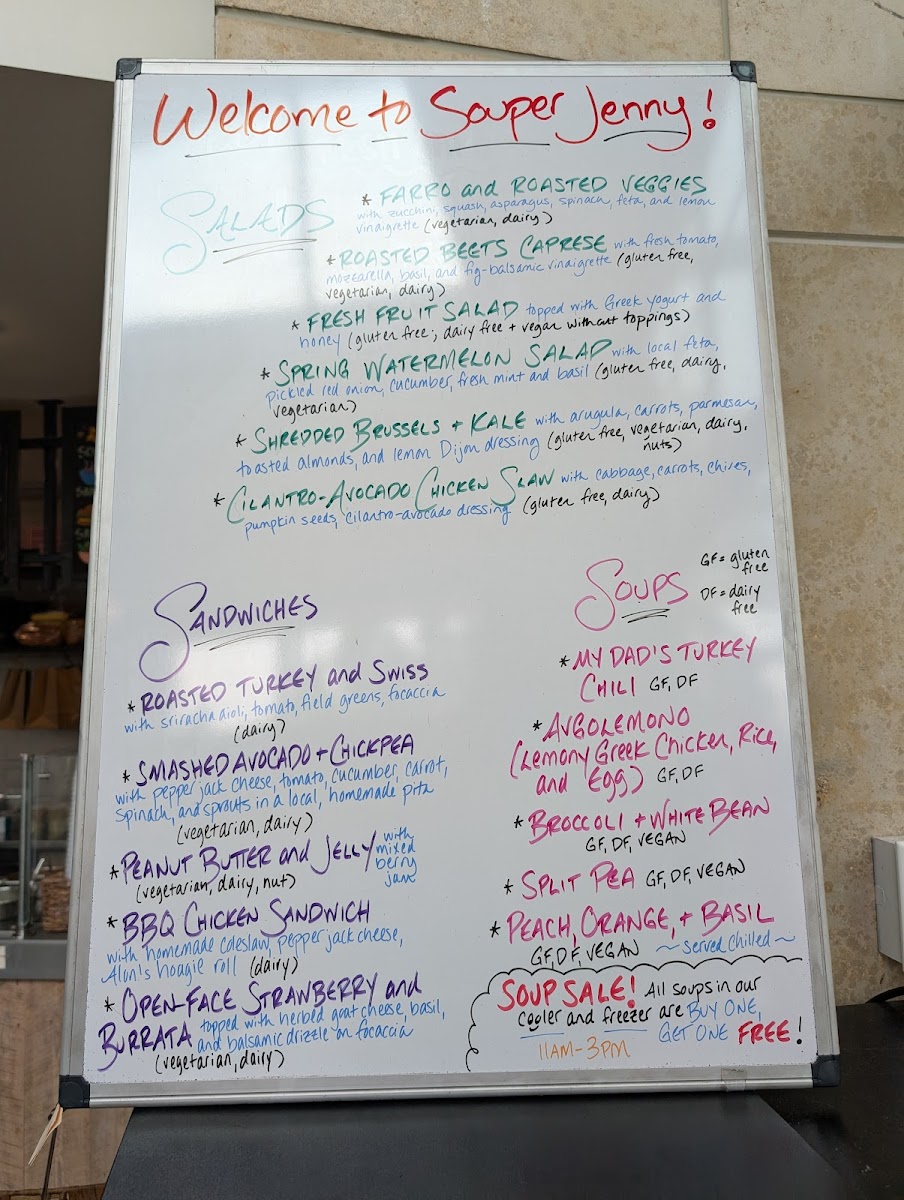 Welcome to Souper Jenny!
SALADS
* FARRO and ROASTED VEGGIES
with zucchini, squash, asparagus, spinach, feta, and lemon
vinaigrette (vegetarian, dairy)
* ROASTED BEETS CAPRESE with fresh tomato,
mozzarella, basil, and fig-balsamic vinaigrette (gluten free,
vegetarian, dairy)
* FRESH FRUIT SALAD topped with Greek yogurt and
honey (gluten free; dairy free + vegan without toppings)
* SPRING WATERMELON SALAD with local feta,
pickled red onion, cucumber, fresh mint and basil (gluten free, dairy,
vegetarian)
* SHREDDED BRUSSELS + KALE with arugula, carrots, parmesan,
toasted almonds, and lemon Dijon dressing (gluten free, vegetarian, dairy,
nuts)
* CILANTRO-AVOCADO CHICKEN SLAW with cabbage, carrots, chives,
pumpkin seeds, cilantro-avocado dressing (gluten free, dairy)
SANDWICHES
* ROASTED TURKEY and SWISS
with sriracha aioli, tomato, field greens, focaccia
(dairy)
* SMASHED AVOCADO + CHICKPEA
with pepper jack cheese, tomato, cucumber, carrot,
spinach, and sprouts in a local, homemade pita
(vegetarian, dairy)
* PEANUT BUTTER and JELLY with
mixed
berry
jam
(vegetarian, dairy, nut)
* BBQ CHICKEN SANDWICH
with homemade coleslaw, pepper jack cheese,
Alon's hoagie roll (dairy)
* OPEN-FACE STRAWBERRY and
BURRATA topped with herbed goat cheese, basil,
and balsamic drizzle on focaccia
(vegetarian, dairy)
SOUPS
GF = gluten
free
DF = dairy
free
* MY DAD'S TURKEY
CHILI GF, DF
* AVGOLEMONO
(Lemony Greek Chicken, Rice,
and Egg) GF, DF
* BROCCOLI + WHITE BEAN
GF, DF, VEGAN
* SPLIT PEA GF, DF, VEGAN
* PEACH, ORANGE, + BASIL
GF, DF, VEGAN ~ served chilled ~
SOUP SALE! All soups in our
cooler and freezer are BUY ONE,
GET ONE FREE!
11AM-3PM